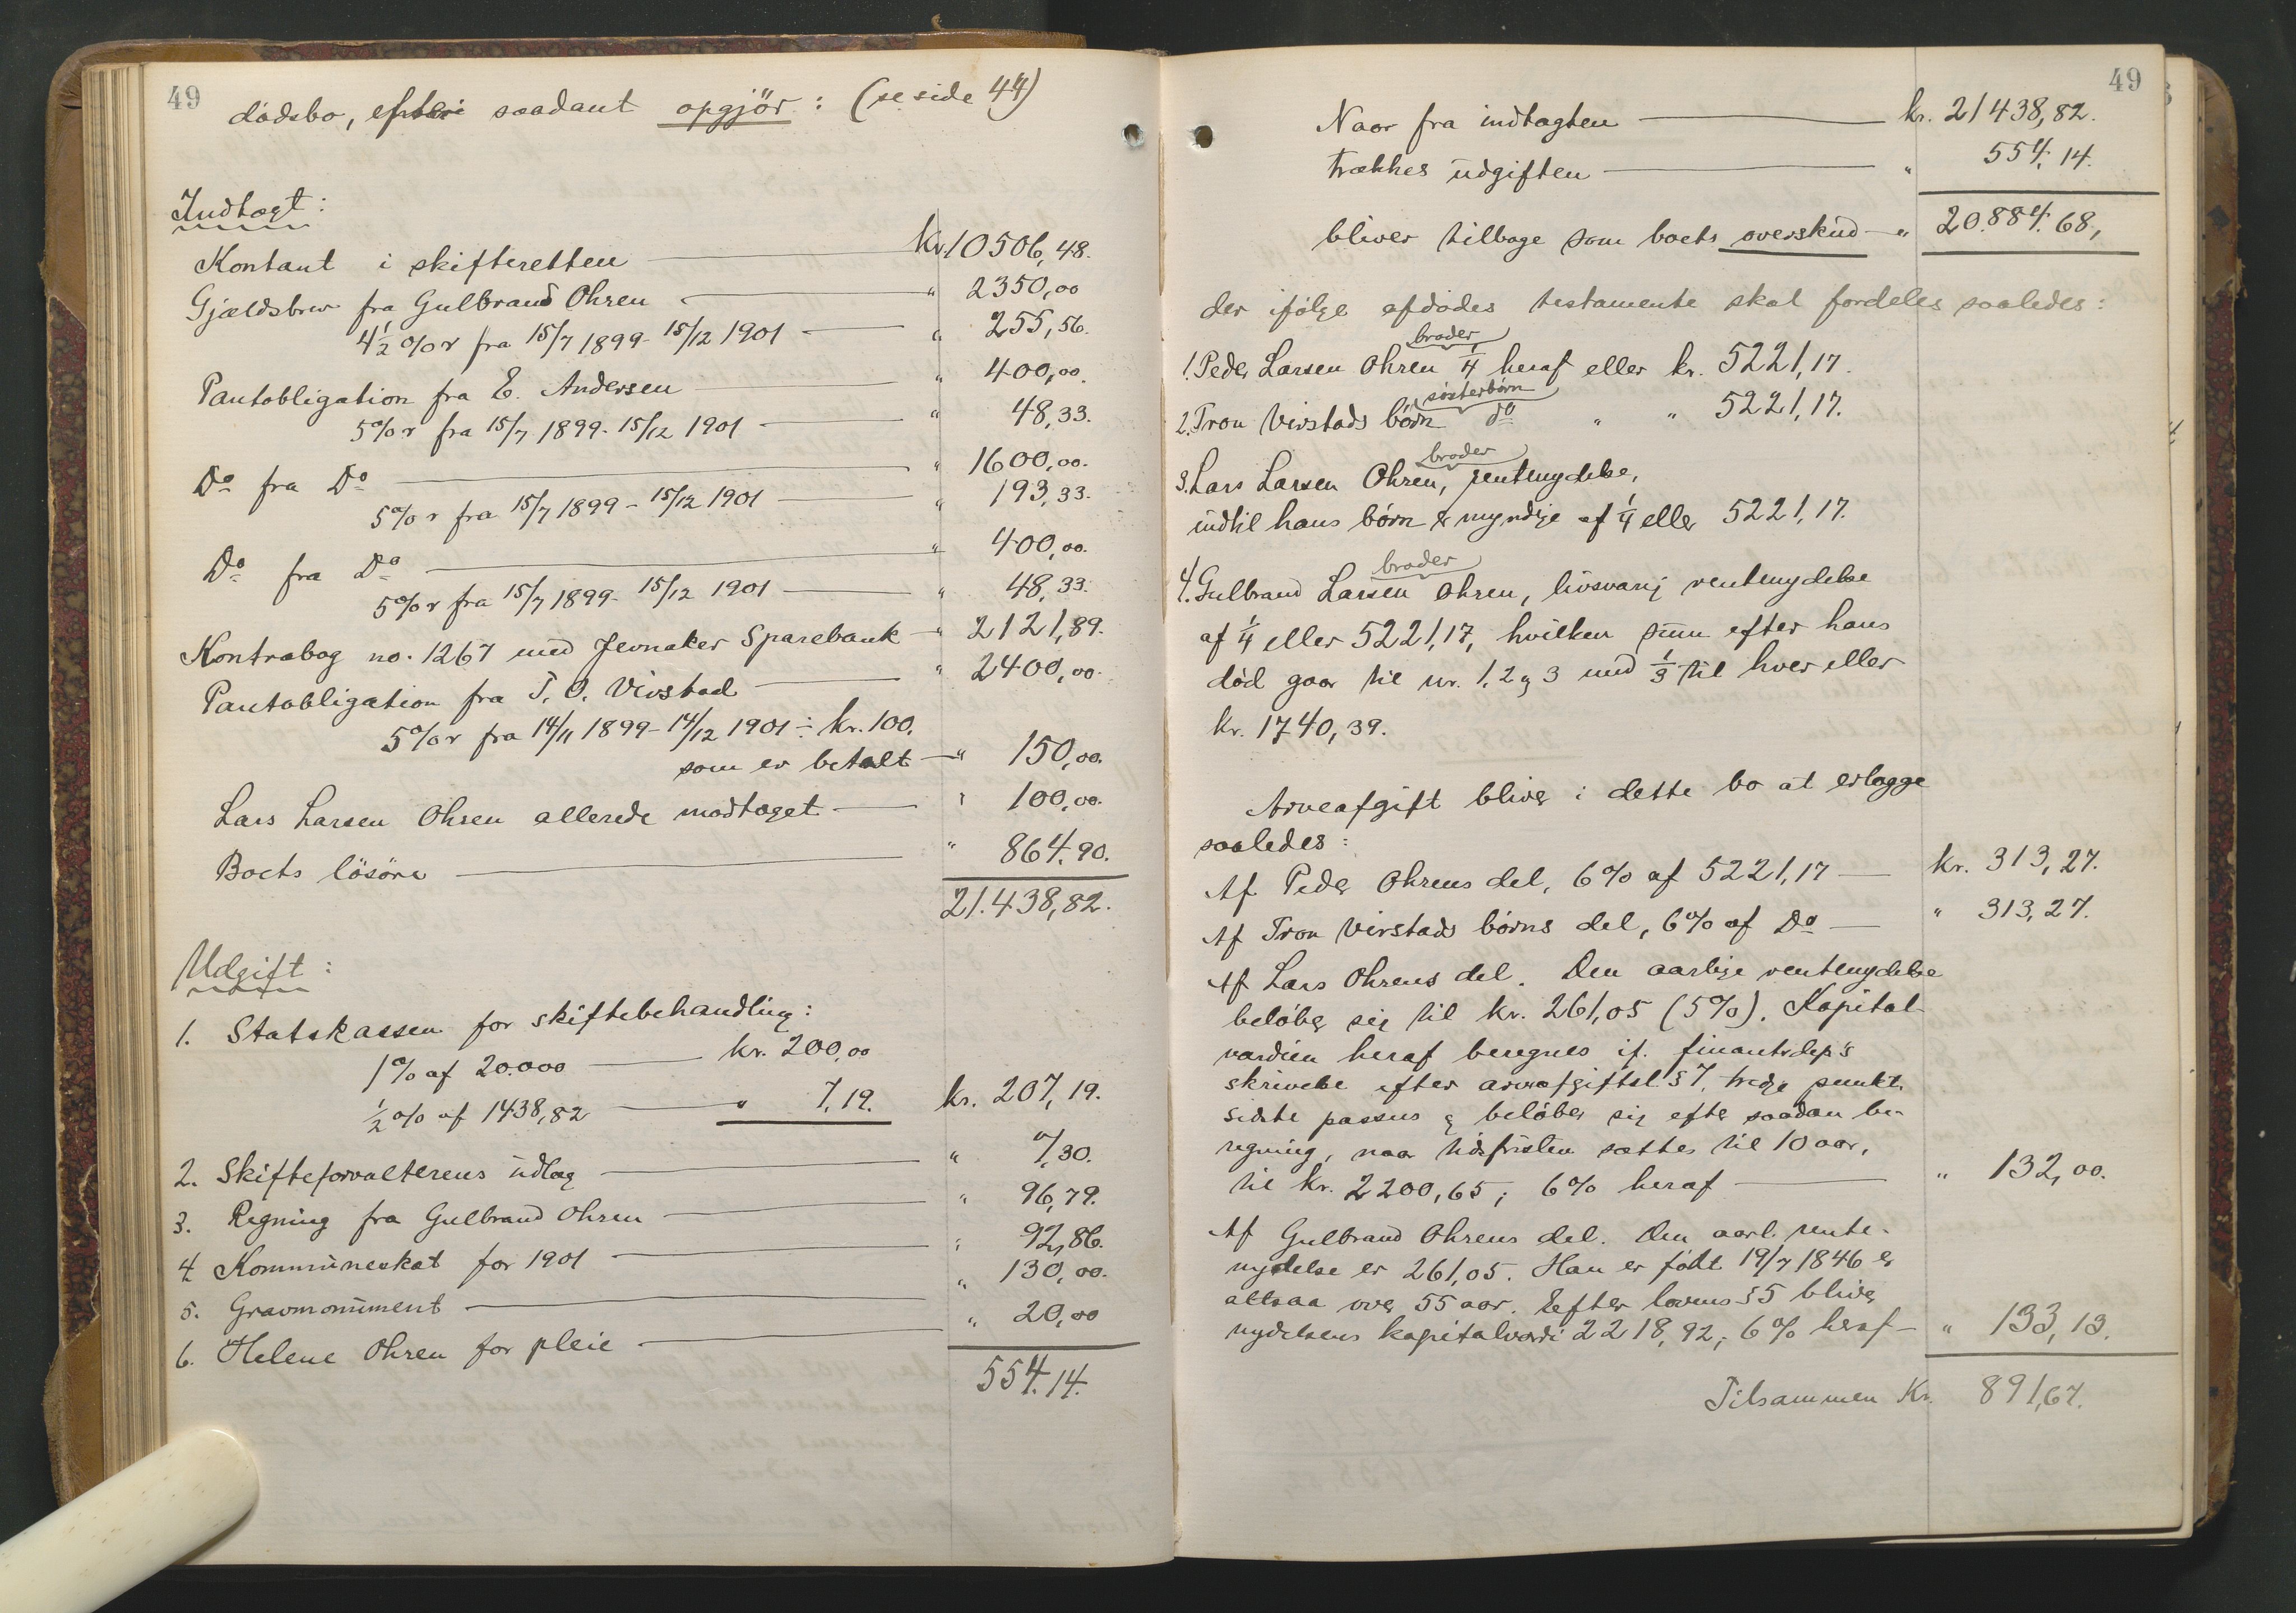 49
dödsbo, efter saadant opgjör: (se side 44)
Indtægt:
Kontant i skifteretten — Kr. 10506,48.
Gjældsbrev fra Gulbrand Ohren — " 2350,00
4½ % r fra 15/7 1899 - 15/12 1901 — " 255,56.
Pantobligation fra E. Andersen — " 400,00.
5 % r fra 15/7 1899 - 15/12 1901 — " 48,33.
Do fra Do — " 1600,00.
5 % r fra 15/7 1899 - 15/12 1901 — " 193,33.
Do fra Do — " 400,00.
5 % r fra 15/7 1899 - 15/12 1901 — " 48,33.
Kontrabog no. 1267 med Jevnaker Sparebank — " 2121,89.
Pantobligation fra T. O. Virstad — " 2400,00.
5 % r fra 14/11 1899 - 14/12 1901 ÷ kr. 100,
som er betalt — " 150,00.
Lars Larsen Ohren allerede modtaget — " 100,00.
Boets lösöre — " 864,90.
21.438,82.
Udgift:
1. Statskassen for skiftebehandling:
1 % af 20.000 — kr. 200,00
½ % af 1438,82 — " 7,19. kr. 207,19.
2. Skifteforvalterens udlæg — " 7,30.
3. Regning fra Gulbrand Ohren — " 96,79.
4. Kommuneskat for 1901 — " 92,86.
5. Gravmonument — " 130,00.
6. Helene Ohren for pleie — " 20,00
554,14.
49
Naar fra indtægten — kr. 21438,82.
trækkes udgiften — " 554,14.
bliver tilbage som boets overskud — " 20.884,68,
der ifølge afdødes testamente skal fordeles saaledes:
broder
1. Peder Larsen Ohren ¼ heraf eller kr. 5221,17.
søsterbørn
2. Tron Virstads børn do " " 5221,17.
broder
3. Lars Larsen Ohren, rentenydelse,
indtil hans børn er myndige af ¼ eller 5221,17.
broder
4. Gulbrand Larsen Ohren, livsvarig rentenydelse
af ¼ eller 5221,17, hvilken sum efter hans
død gaar til nr. 1, 2 og 3 med ⅓ til hver eller
kr. 1740,39.
Arveafgift bliver i dette bo at erlægge
saaledes:
Af Peder Ohrens del, 6 % af 5221,17 — kr. 313,27.
Af Tron Virstads børns del, 6 % af Do — " 313,27.
Af Lars Ohrens del. Den aarlige rentenydelse
beløber sig til kr. 261,05 (5 %). Kapital-
værdien heraf beregnes if. finantsdep's
skrivelse efter arveafgiftsl. § 7, tredje punkt,
sidste passus og beløber sig efter saadan be-
regning, naar tidsfristen sættes til 10 aar,
til kr. 2200,65; 6 % heraf — " 132,00.
Af Gulbrand Ohrens del. Den aarl. rente-
nydelse er 261,05. Han er født 19/7 1846 er
altsaa over 55 aar. Efter lovens § 5 bliver
nydelsens kapitalværdi 2218,92; 6 % heraf — " 133,13.
Tilsammen Kr. 891,67.